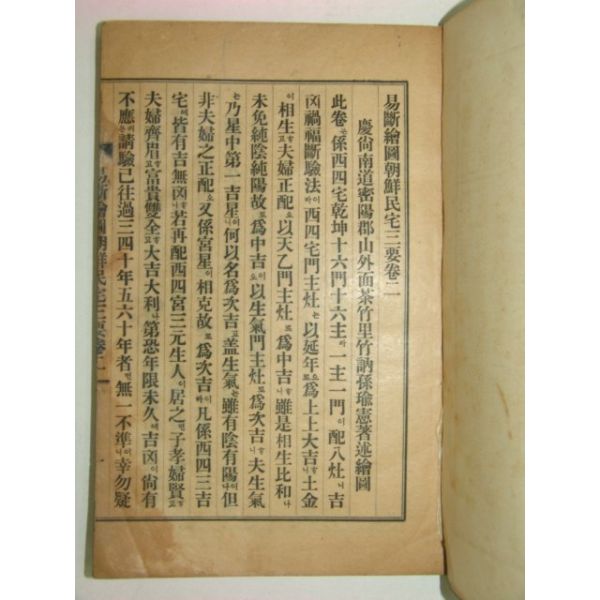 易斷繪圖朝鮮民宅三要卷二
慶尙南道密陽郡山外面茶竹里竹訥孫瑜憲著述繪圖
此卷은係西四宅乾坤十六門十六主라一主一門이配八灶니吉
凶禍福斷驗法이라西四宅門主灶는以延年으로爲上上大吉이니土金
이相生ᄒᆞ고夫婦正配오以天乙門主灶로爲中吉ᄒᆞ니雖是相生比和나
未免純陰純陽故로爲中吉이오以生氣門主灶로爲次吉ᄒᆞ니夫生氣
는乃星中第一吉星이니何以名爲次吉고盖生氣는雖有陰有陽이나但
非夫婦之正配오又係宮星이相克故로爲次吉이라凡係西四三吉
宅에皆有吉無凶ᄒᆞ니若再配西四宮三元生人이居之면子孝婦賢ᄒᆞ고
夫婦齊眉ᄒᆞ고富貴雙全ᄒᆞ고大吉大利나第恐年限未久에吉凶이尙有
不應이는請驗已往過三四十年五六十年者면無一不準이니幸勿疑
易斷繪圖朝鮮民宅三要卷二